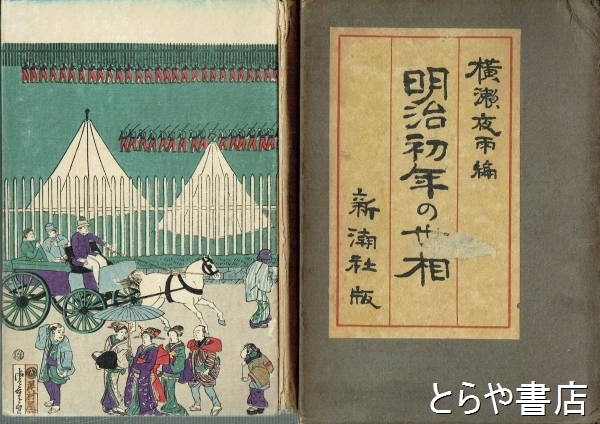 横瀬夜雨編
明治初年の世相
新潮社版
とらや書店